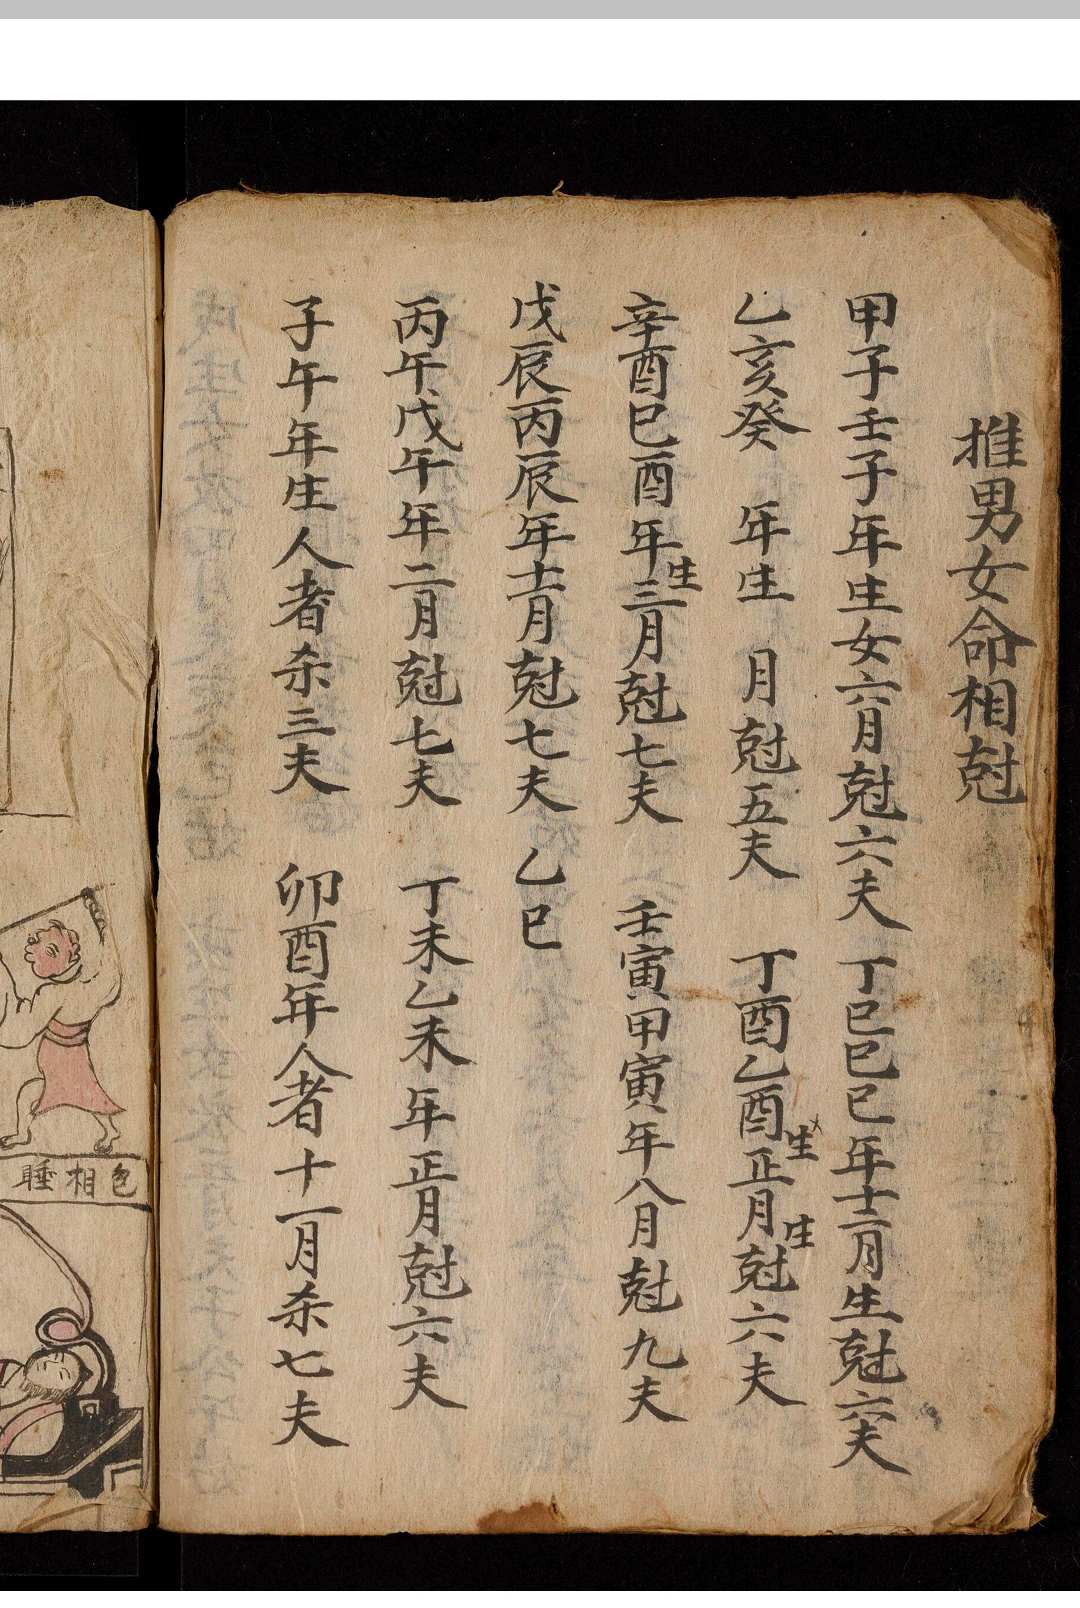 推男女命相尅
甲子壬子年生女六月尅六夫 丁巳巳巳年十二月生尅六夫
乙亥癸 年生 月尅五夫 丁酉乙酉生正月生尅六夫
辛酉巳酉年生三月尅七夫 壬寅甲寅年八月尅九夫
戊辰丙辰年十二月尅七夫 乙巳
丙午戊午年二月尅七夫 丁未乙未年正月尅六夫
子午年生人者杀三夫 卯酉年人者十一月杀七夫
色相睡